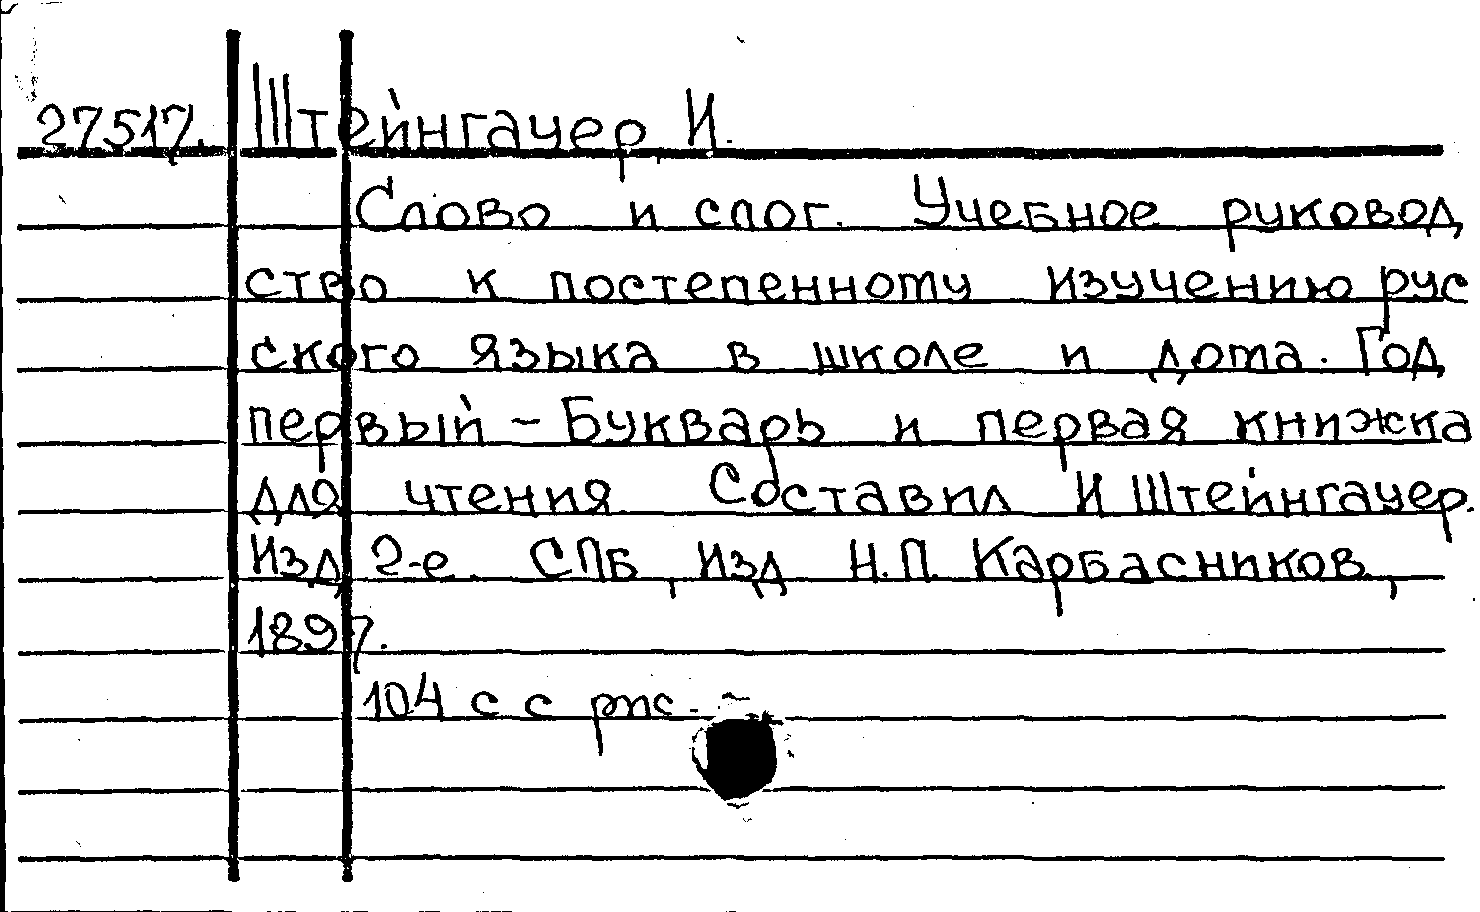 27517. Штейнгауер, И.
Слово и слог. Учебное руковод
ство к постепенному изучению рус
ского языка в школе и дома. Год
первый - Букварь и первая книжка
для чтения Составил И Штейнгауер.
Изд 2-е. СПБ, Изд Н.П. Карбасников,
1897.
104 с с рис.